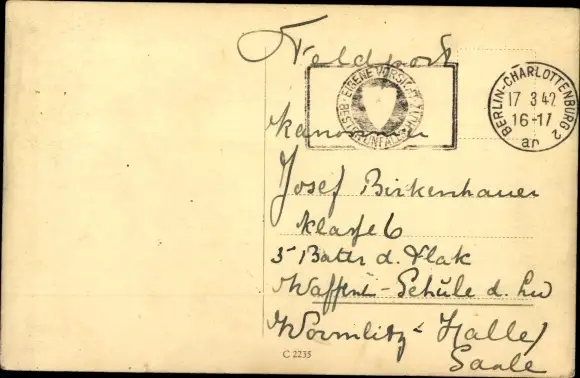 Feldpost
EIGENE VORSICHT
BESTER UNFALLSCHUTZ
BERLIN-CHARLOTTENBURG 2
17 3 42
16-17
ar
Kanonier
Josef Birkenhauer
Klasse 6
5 Battr d. Flak
Waffen-Schule d. Lw
Wörmlitz-Halle/
Saale
C 2235